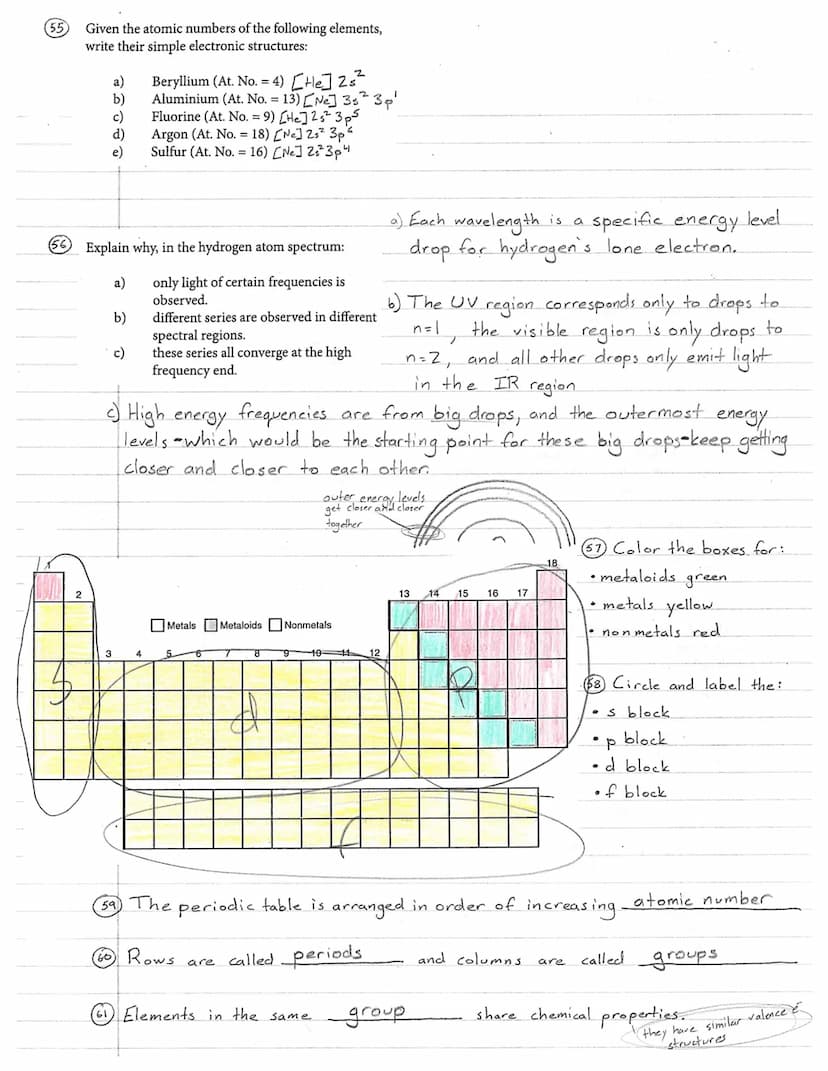 55 Given the atomic numbers of the following elements,
write their simple electronic structures:
a) Beryllium (At. No. = 4) [He] 2s²
b) Aluminium (At. No. = 13) [Ne] 3s² 3p¹
c) Fluorine (At. No. = 9) [He] 2s² 3p⁵
d) Argon (At. No. = 18) [Ne] 2s² 3p⁶
e) Sulfur (At. No. = 16) [Ne] 2s² 3p⁴
56 Explain why, in the hydrogen atom spectrum:
a) only light of certain frequencies is
observed.
b) different series are observed in different
spectral regions.
c) these series all converge at the high
frequency end.
a) Each wavelength is a specific energy level
drop for hydrogen's lone electron.
b) The UV region corresponds only to drops to
n=1, the visible region is only drops to
n=2, and all other drops only emit light
in the IR region
c) High energy frequencies are from big drops, and the outermost energy
levels - which would be the starting point for these big drops - keep getting
closer and closer to each other.
outer energy levels
get closer and closer
together
57 Color the boxes for:
• metaloids green
• metals yellow
• nonmetals red
1 18
2 13 14 15 16 17
Metals Metaloids Nonmetals
3 4 5 6 7 8 9 10 11 12
s d p
f
58 Circle and label the:
• s block
• p block
• d block
• f block
59 The periodic table is arranged in order of increasing atomic number
60 Rows are called periods and columns are called groups
61 Elements in the same group share chemical properties.
they have similar valence e⁻
structures